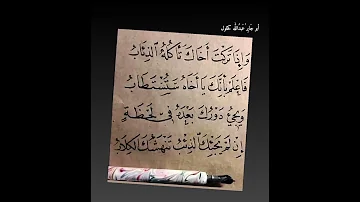 أبو جابر عبدالله كتبول
وَإِذَا تَرَكْتَ أَخَاكَ تَأْكُلُهُ الذِّئَابُ
فَاعْلَمْ بِأَنَّكَ يَا أَخَاهُ سَتُسْتَطَابُ
وَيَجِيءُ دَوْرُكَ بَعْدَهُ فِي لَحْظَةٍ
إِنْ لَمْ يَجِئْكَ الذِّئْبُ تَنْهَشُكَ الكِلَابُ